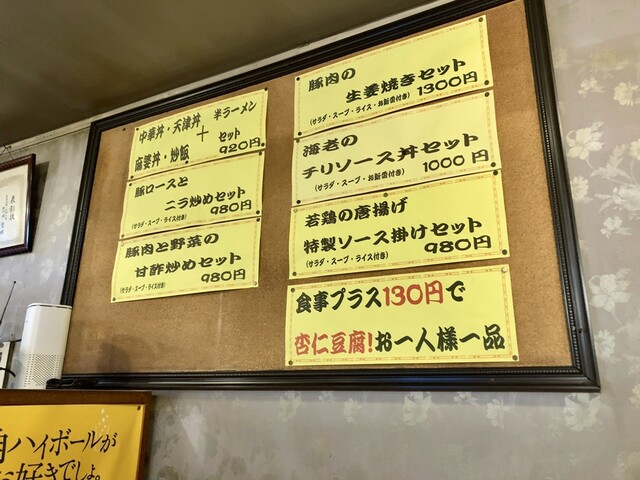 中華丼・天津丼
麻婆丼・炒飯
+
半ラーメン
セット
920円
豚ロースと
ニラ炒めセット
(サラダ・スープ・ライス付き)
980円
豚肉と野菜の
甘酢炒めセット
(サラダ・スープ・ライス付き)
980円
豚肉の
生姜焼きセット
(サラダ・スープ・ライス・お新香付き)
1300円
海老の
チリソース丼セット
(サラダ・スープ・お新香付き)
1000円
若鶏の唐揚げ
特製ソース掛けセット
(サラダ・スープ・ライス付き)
980円
食事プラス130円で
杏仁豆腐!お一人様一品
表彰状
ハイボールが
好きでしょ。